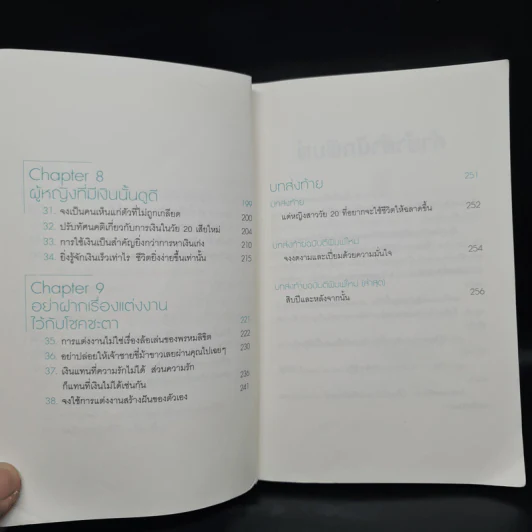 Chapter 8
ผู้หญิงที่มีเงินนั้นดูดี 199
31. จงเป็นคนเห็นแก่ตัวที่ไม่ถูกเกลียด 200
32. ปรับทัศนคติเกี่ยวกับการเงินในวัย 20 เสียใหม่ 204
33. การใช้เงินเป็นสำคัญยิ่งกว่าการหาเงินเก่ง 210
34. ยิ่งรู้จักเงินเร็วเท่าไร ชีวิตยิ่งง่ายขึ้นเท่านั้น 215
Chapter 9
อย่าฝากเรื่องแต่งงาน
ไว้กับโชคชะตา 221
35. การแต่งงานไม่ใช่เรื่องล้อเล่นของพรหมลิขิต 222
36. อย่าปล่อยให้เจ้าชายขี่ม้าขาวเลยผ่านคุณไปเฉยๆ 230
37. เงินแทนที่ความรักไม่ได้ ส่วนความรัก
ก็แทนที่เงินไม่ได้เช่นกัน 236
38. จงใช้การแต่งงานสร้างฝันของตัวเอง 241
บทส่งท้าย 251
บทส่งท้าย
แด่หญิงสาววัย 20 ที่อยากจะใช้ชีวิตให้ฉลาดขึ้น 252
บทส่งท้ายฉบับตีพิมพ์ใหม่
จงงดงามและเปี่ยมด้วยความมั่นใจ 254
บทส่งท้ายฉบับตีพิมพ์ใหม่ (ล่าสุด)
สิบปีและหลังจากนั้น 256